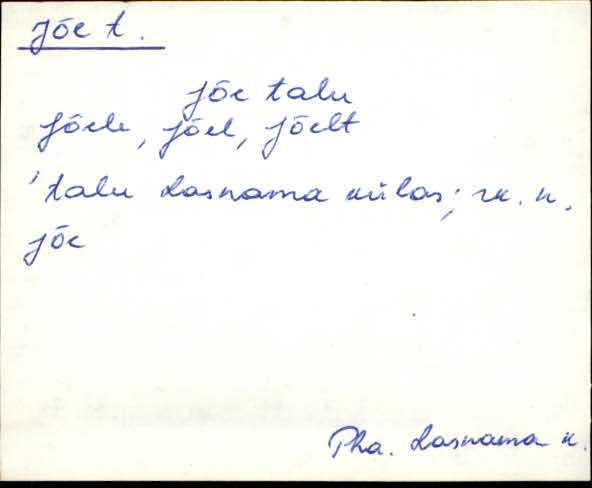 Jõe t.
jõe talu
jõele, jõel, jõelt
'talu Lasnama külas; rk. n.
jõe
Pha. Lasnama k.